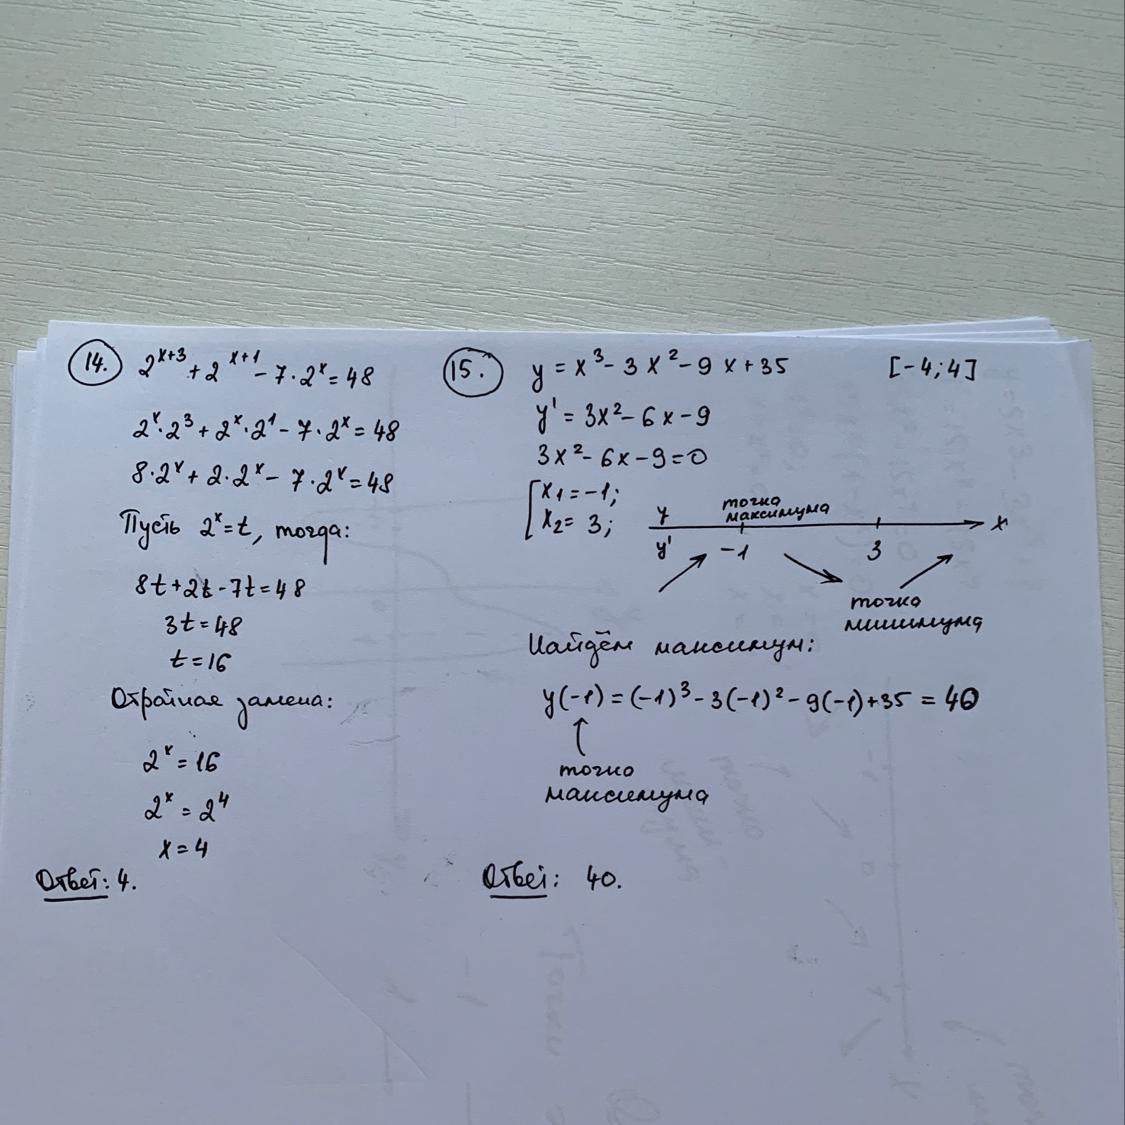 14. 2^{x+3} + 2^{x+1} - 7·2^x = 48
2^x·2^3 + 2^x·2^1 - 7·2^x = 48
8·2^x + 2·2^x - 7·2^x = 48
Пусть 2^x = t, тогда:
8t + 2t - 7t = 48
3t = 48
t = 16
Обратная замена:
2^x = 16
2^x = 2^4
x = 4
Ответ: 4.
15. y = x^3 - 3x^2 - 9x + 35 [-4; 4]
y' = 3x^2 - 6x - 9
3x^2 - 6x - 9 = 0
[ x_1 = -1;
x_2 = 3;
точка
максимума
y x
y' -1 3
точка
минимума
Найдём максимум:
y(-1) = (-1)^3 - 3(-1)^2 - 9(-1) + 35 = 40
точка
максимума
Ответ: 40.